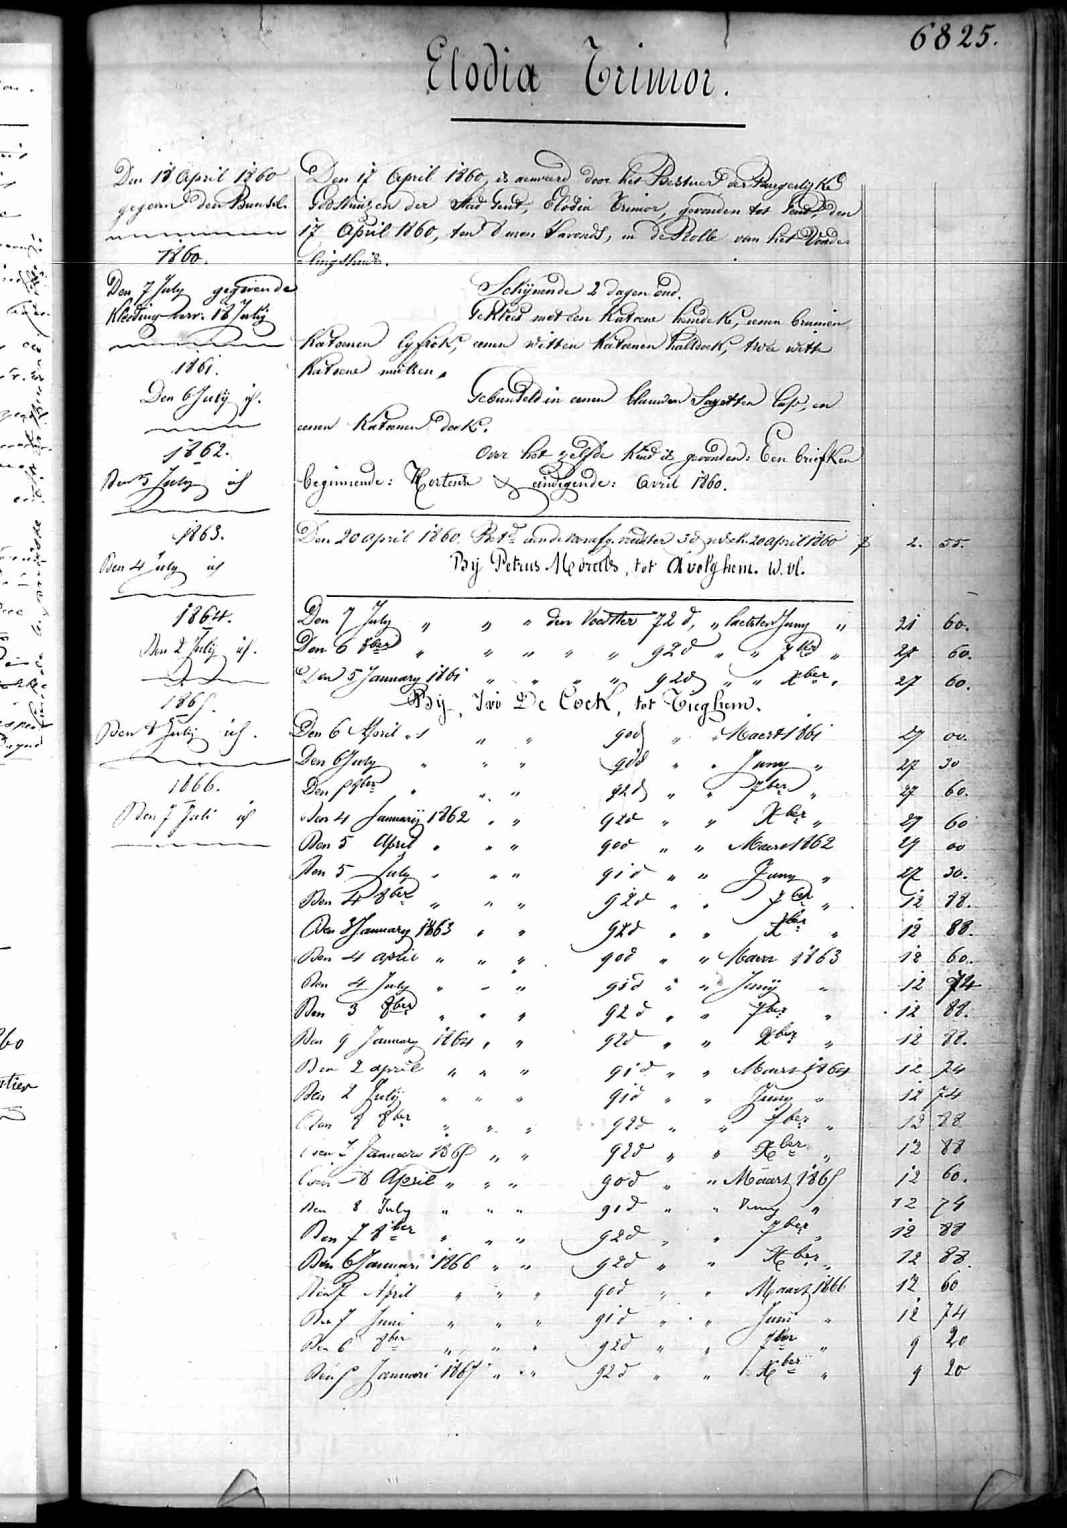 6825.
Elodia Trimor.
Den 18 April 1860
gegeven den Bundel.
1860.
Den 7 July gegevende
Kleeding 18 July
1861.
Den 6 July id.
1862.
Den 5 July id
1863.
Den 4 July id
1864.
Den 2 July id.
1865.
Den 8 July id.
1866.
Den 7 Juli id
Den 17 April 1860, is aenveerd door het Bestuer der Burgerlyke
Godshuizen der Stad Gent, Elodia Trimor, gevonden tot Gent den
17 April 1860, ten 9 uren s'avonds, in de Rolle van het Vonde-
lingshuis.
Schynende 2 dagen oud.
Gekleed met een katoene hemdeke, eenen bruinen
katoenen lyfrok, eenen witten katoenen halsdoek, twee witte
katoene mutsen.
Gebundeld in eenen blauwen Sayetten lap, en
eenen katoenen doek.
Over het zelfde kind is gevonden: Een briefken
beginnende: Hortense & eindigende: Avril 1860.
Den 20 april 1860. 20 april 1860 f 2. 55.
By Petrus Morells, tot Avelghem. W. vl.
Den 7 July " " " den Voedster 72 d, " laetsten Juny " 21 60.
Den 6 8ber " " " " " 92 d " " 7ber " 27 60.
Den 5 January 1861 " " " " 92 d " " Xber " 27 60.
By Ivo De Cock, tot Tieghem.
Den 6 April " " " 90 d " " Maert 1861 27 00.
Den 6 July " " " 91 d " " Juny " 27 30
Den 8ber " " " 92 d " " 7ber " 27 60.
Den 4 January 1862 " " 92 d " " Xber " 27 60
Den 5 April " " " 90 d " " Maert 1862 27 00
Den 5 July " " " 91 d " " Juny " 27 30.
Den 4 8ber " " " 92 d " " 7ber " 12 88.
Den 3 January 1863 " " 92 d " " Xber " 12 88.
Den 4 april " " " 90 d " " Maert 1863 12 60.
Den 4 July " " " 91 d " " Juny " 12 74
Den 3 8ber " " " 92 d " " 7ber " 12 88.
Den 9 January 1864 " " 92 d " " Xber " 12 88.
Den 2 april " " " 91 d " " Maert 1864 12 74
Den 2 July " " " 91 d " " Juny " 12 74
Den 8ber " " " 92 d " " 7ber " 12 88
Den 7 Januari 1865 " " 92 d " " Xber " 12 88
Den 8 April " " " 90 d " " Maart 1865 12 60.
Den 8 July " " " 91 d " " Juny " 12 74
Den 7 8ber " " " 92 d " " 7ber " 12 88
Den 6 Januari 1866 " " 92 d " " Xber " 12 88.
Den 7 April " " " 90 d " " Maart 1866 12 60
Den 7 Juni " " " 91 d " " Juni " 12 74
Den 6 8ber " " " 92 d " " 7ber " 9 20
Den 5 Januari 1867 " " 92 d " " Xber " 9 20